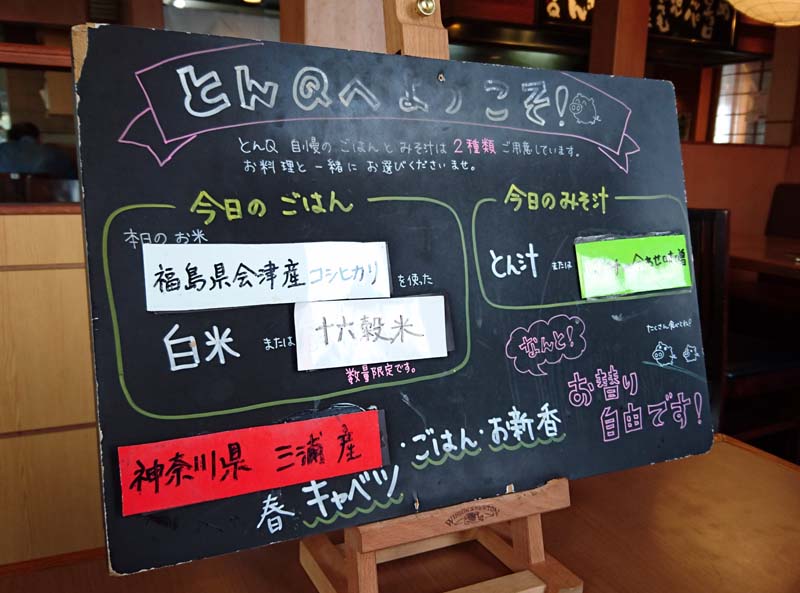 とんQへようこそ!
とんQ 自慢の ごはん と みそ汁は 2種類 ご用意しています。
お料理と一緒に お選びくださいませ。
今日の ごはん
本日の お米
福島県会津産 コシヒカリ を使った
白米 または 十六穀米
数量限定です。
今日のみそ汁
とん汁 または 合わせ味噌
なんと!
たくさん食べてね♪
お替り
自由です!
神奈川県 三浦産
春 キャベツ ・ごはん・お新香
WINSOR & NEWTON